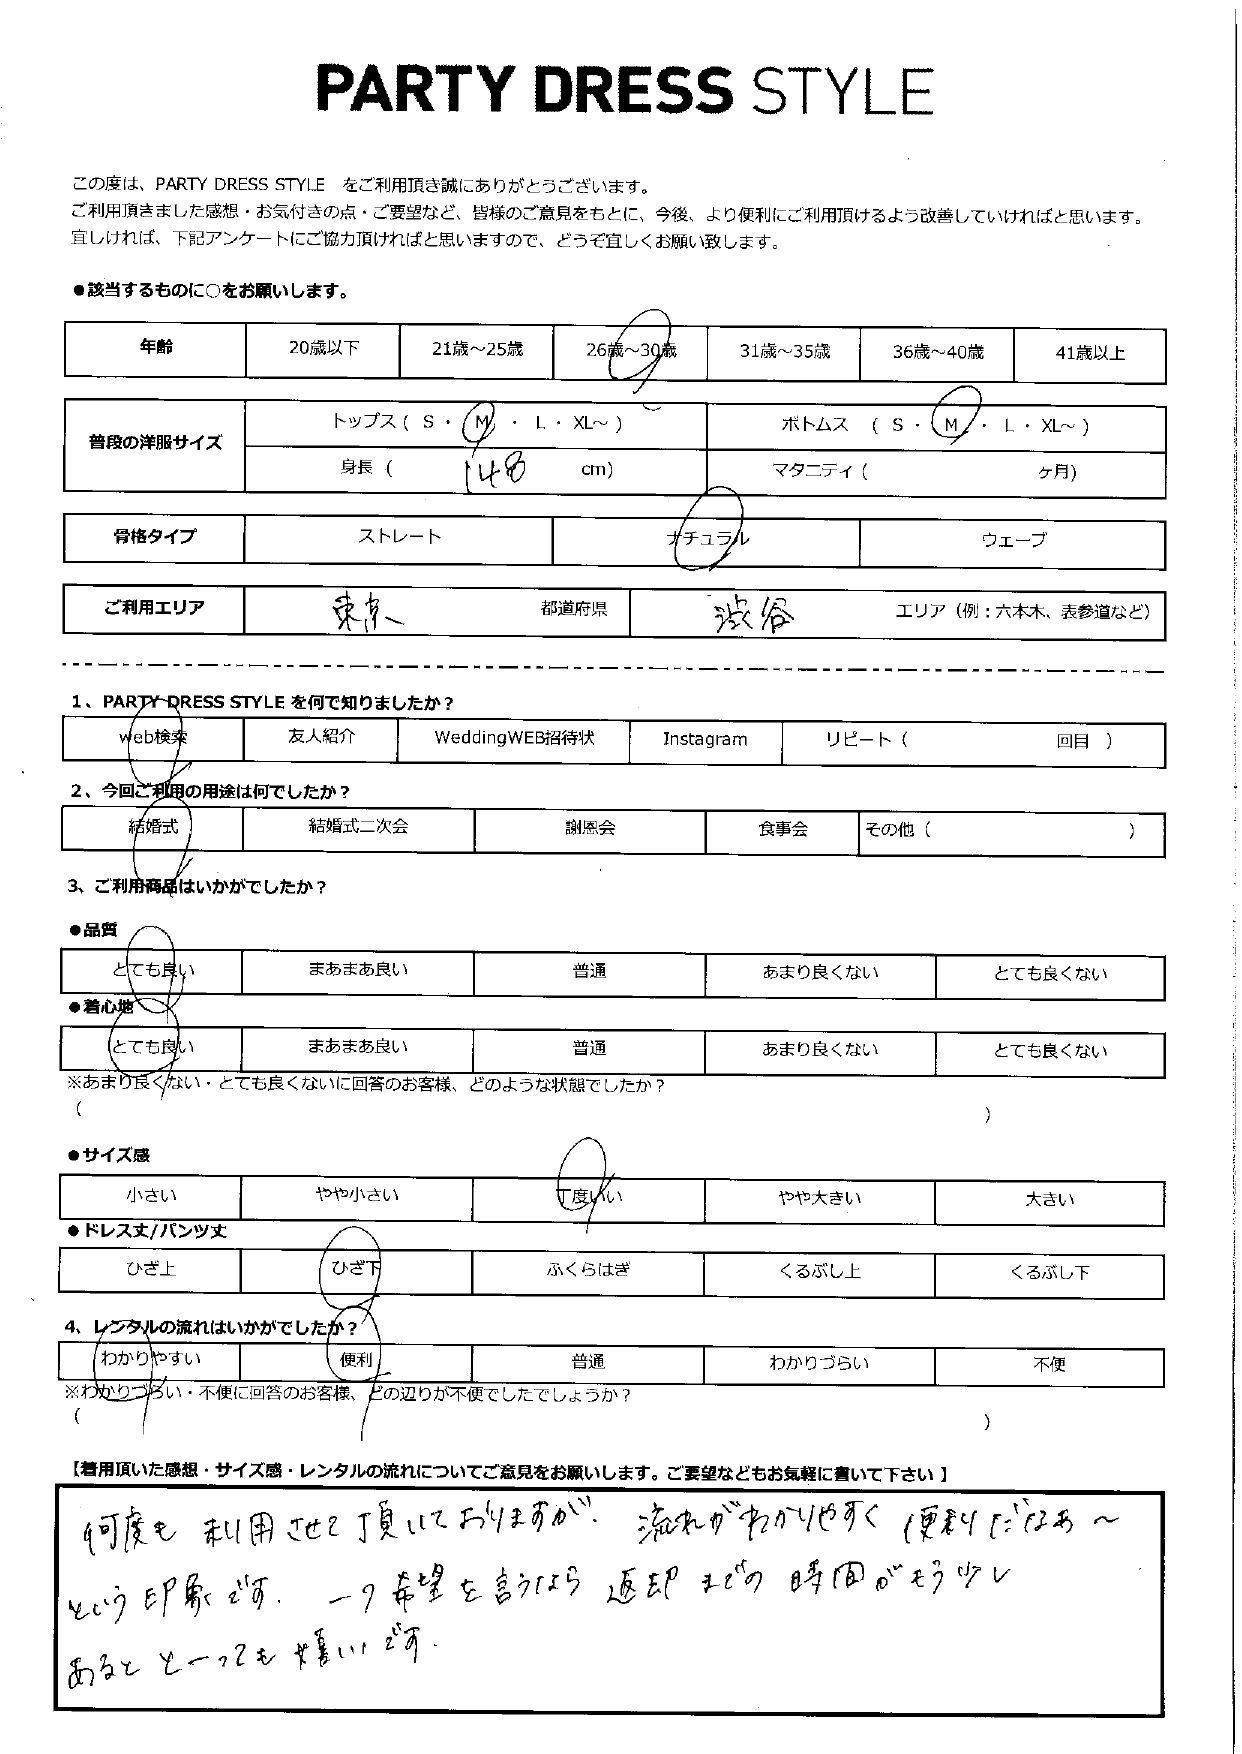 PARTY DRESS STYLE
この度は、PARTY DRESS STYLE をご利用頂き誠にありがとうございます。
ご利用頂きました感想・お気付きの点・ご要望など、皆様のご意見をもとに、今後、より便利にご利用頂けるよう改善していければと思います。
宜しければ、下記アンケートにご協力頂ければと思いますので、どうぞ宜しくお願い致します。
●該当するものに○をお願いします。
年齢 20歳以下 21歳～25歳 26歳～30歳 31歳～35歳 36歳～40歳 41歳以上
普段の洋服サイズ トップス ( S ・ M ・ L ・ XL～ ) ボトムス ( S ・ M ・ L ・ XL～ )
身長 ( 148 cm) マタニティ ( ヶ月)
骨格タイプ ストレート ナチュラル ウェーブ
ご利用エリア 東京 都道府県 渋谷 エリア (例：六本木、表参道など)
1、PARTY DRESS STYLE を何で知りましたか？
web検索 友人紹介 WeddingWEB招待状 Instagram リピート ( 回目 )
2、今回ご利用の用途は何でしたか？
結婚式 結婚式二次会 謝恩会 食事会 その他 ( )
3、ご利用商品はいかがでしたか？
●品質
とても良い まあまあ良い 普通 あまり良くない とても良くない
●着心地
とても良い まあまあ良い 普通 あまり良くない とても良くない
※あまり良くない・とても良くないに回答のお客様、どのような状態でしたか？
( )
●サイズ感
小さい やや小さい 丁度いい やや大きい 大きい
●ドレス丈/パンツ丈
ひざ上 ひざ下 ふくらはぎ くるぶし上 くるぶし下
4、レンタルの流れはいかがでしたか？
わかりやすい 便利 普通 わかりづらい 不便
※わかりづらい・不便に回答のお客様、どの辺りが不便でしたでしょうか？
( )
【着用頂いた感想・サイズ感・レンタルの流れについてご意見をお願いします。ご要望などもお気軽に書いて下さい】
何度も 利用させて頂いておりますが、流れがわかりやすく 便利だなあ～
という印象です。一つ希望を言うなら 返却までの 時間がもう少し
あると とーっても 嬉しいです。